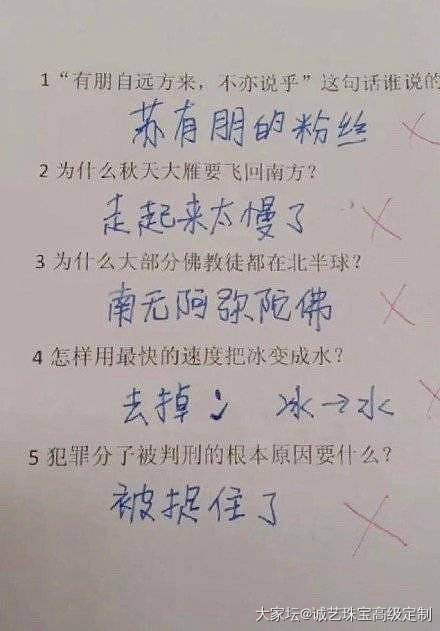 1 “有朋自远方来，不亦说乎”这句话谁说的
苏有朋的粉丝
2 为什么秋天大雁要飞回南方？
走起来太慢了
3 为什么大部分佛教徒都在北半球？
南无阿弥陀佛
4 怎样用最快的速度把冰变成水？
去掉冫 冰→水
5 犯罪分子被判刑的根本原因要什么？
被捉住了
大家坛@诚艺珠宝高级定制